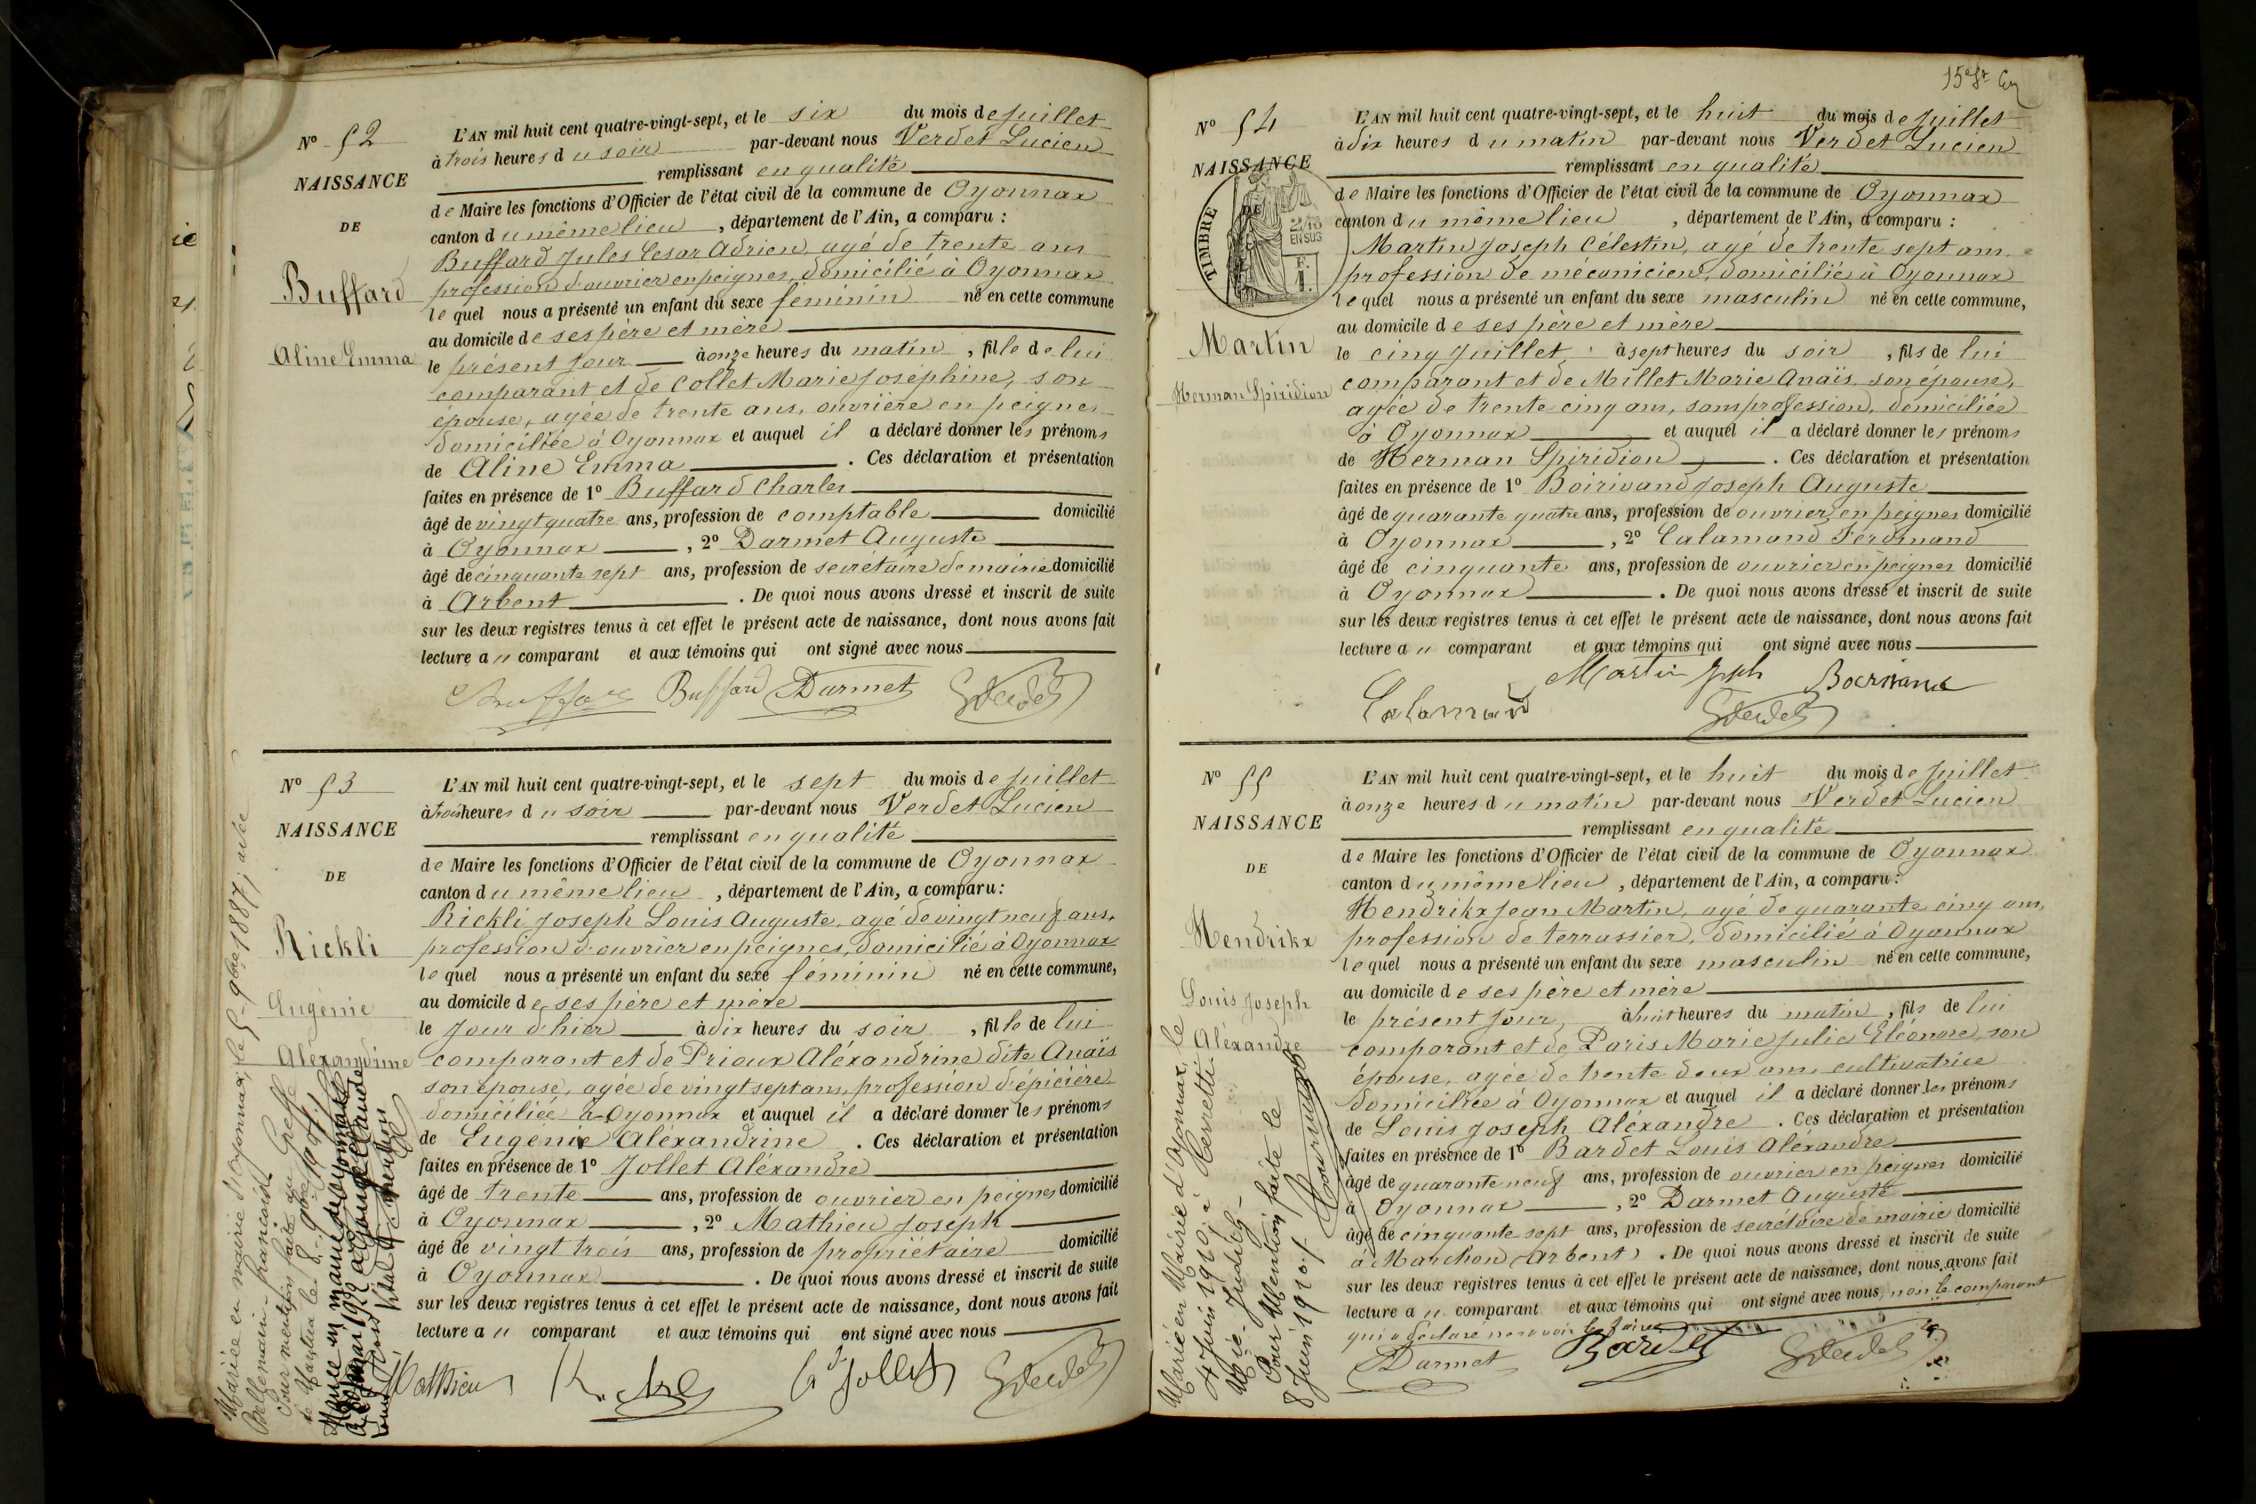 N° 52
NAISSANCE
DE
Buffard
Aline Emma
L'AN mil huit cent quatre-vingt-sept, et le six du mois de Juillet
à trois heures du soir par-devant nous Verdet Lucien
remplissant en qualité
de Maire les fonctions d'Officier de l'état civil de la commune de Oyonnax
canton du même lieu, département de l'Ain, a comparu :
Buffard Jules Cesar Adrien, agé de trente ans
profession d'ouvrier en peignes, domicilié à Oyonnax
lequel nous a présenté un enfant du sexe féminin né en cette commune
au domicile de ses père et mère
le présent jour à onze heures du matin, fille de lui
comparant et de Collet Marie Joséphine, son
épouse, agée de trente ans, ouvrière en peignes
domiciliée à Oyonnax et auquel il a déclaré donner les prénoms
de Aline Emma. Ces déclaration et présentation
faites en présence de 1° Buffard Charles
âgé de vingt quatre ans, profession de comptable domicilié
à Oyonnax, 2° Darmet Auguste
âgé de cinquante sept ans, profession de secrétaire de mairie domicilié
à Arbent. De quoi nous avons dressé et inscrit de suite
sur les deux registres tenus à cet effet le présent acte de naissance, dont nous avons fait
lecture au comparant et aux témoins qui ont signé avec nous
Buffard Buffard Darmet Verdet
N° 53
NAISSANCE
DE
Rickli
Eugénie
Aléxandrine
L'AN mil huit cent quatre-vingt-sept, et le sept du mois de Juillet
à trois heures du soir par-devant nous Verdet Lucien
remplissant en qualité
de Maire les fonctions d'Officier de l'état civil de la commune de Oyonnax
canton du même lieu, département de l'Ain, a comparu :
Rickli Joseph Louis Auguste, agé de vingt neuf ans,
profession d'ouvrier en peignes, domicilié à Oyonnax
lequel nous a présenté un enfant du sexe féminin né en cette commune,
au domicile de ses père et mère
le jour d'hier à dix heures du soir, fille de lui
comparant et de Prioux Aléxandrine dite Anaïs
son épouse, agée de vingt sept ans, profession d'épicière
domiciliée à Oyonnax et auquel il a déclaré donner les prénoms
de Eugénie Aléxandrine. Ces déclaration et présentation
faites en présence de 1° Jollet Aléxandre
âgé de trente ans, profession de ouvrier en peignes domicilié
à Oyonnax, 2° Mathieu Joseph
âgé de vingt trois ans, profession de propriétaire domicilié
à Oyonnax. De quoi nous avons dressé et inscrit de suite
sur les deux registres tenus à cet effet le présent acte de naissance, dont nous avons fait
lecture au comparant et aux témoins qui ont signé avec nous
Mathieu Jollet Verdet
Mariée en mairie d'Oyonnax, le 5 9bre 1887, avec
Bellemain francois
Pour mention faite au Greffe
de Nantua le 8 9bre
Mariée en mairie d'Oyonnax
avec
15e ft
N° 54
NAISSANCE
DE
TIMBRE
2/10
EN SUS
Martin
Herman Spiridion
L'AN mil huit cent quatre-vingt-sept, et le huit du mois de Juillet
à dix heures du matin par-devant nous Verdet Lucien
remplissant en qualité
de Maire les fonctions d'Officier de l'état civil de la commune de Oyonnax
canton du même lieu, département de l'Ain, a comparu :
Martin Joseph Célestin, agé de trente sept ans
profession de mécanicien, domicilié à Oyonnax
lequel nous a présenté un enfant du sexe masculin né en cette commune,
au domicile de ses père et mère
le cinq Juillet, à sept heures du soir, fils de lui
comparant et de Millet Marie Anaïs son épouse,
agée de trente cinq ans, sans profession, domiciliée
à Oyonnax et auquel il a déclaré donner les prénoms
de Herman Spiridion. Ces déclaration et présentation
faites en présence de 1° Boirivand Joseph Auguste
âgé de quarante quatre ans, profession de ouvrier en peignes domicilié
à Oyonnax, 2° Calamand Ferdinand
âgé de cinquante ans, profession de ouvrier en peignes domicilié
à Oyonnax. De quoi nous avons dressé et inscrit de suite
sur les deux registres tenus à cet effet le présent acte de naissance, dont nous avons fait
lecture au comparant et aux témoins qui ont signé avec nous
Calamand Martin Jph Boirivand Verdet
N° 55
NAISSANCE
DE
Hendrikx
Louis Joseph
Aléxandre
L'AN mil huit cent quatre-vingt-sept, et le huit du mois de Juillet
à onze heures du matin par-devant nous Verdet Lucien
remplissant en qualité
de Maire les fonctions d'Officier de l'état civil de la commune de Oyonnax
canton du même lieu, département de l'Ain, a comparu :
Hendrikx Jean Martin, agé de quarante cinq ans,
profession de terrassier, domicilié à Oyonnax
lequel nous a présenté un enfant du sexe masculin né en cette commune,
au domicile de ses père et mère
le présent jour, à huit heures du matin, fils de lui
comparant et de Paris Marie Julie Eléonore, son
épouse, agée de trente deux ans cultivatrice
domiciliée à Oyonnax et auquel il a déclaré donner les prénoms
de Louis Joseph Aléxandre. Ces déclaration et présentation
faites en présence de 1° Bardet Louis Aléxandre
âgé de quarante neuf ans, profession de ouvrier en peignes domicilié
à Oyonnax, 2° Darmet Auguste
âgé de cinquante sept ans, profession de secrétaire de mairie domicilié
à Marchon (Arbent). De quoi nous avons dressé et inscrit de suite
sur les deux registres tenus à cet effet le présent acte de naissance, dont nous avons fait
lecture au comparant et aux témoins qui ont signé avec nous, non le comparant
qui a déclaré ne savoir le faire
Darmet Bardet Verdet
Marié en Mairie d'Oyonnax, le
4 Juin 1910, à
Mie Judith
Pour Mention faite le
8 Juin 1910